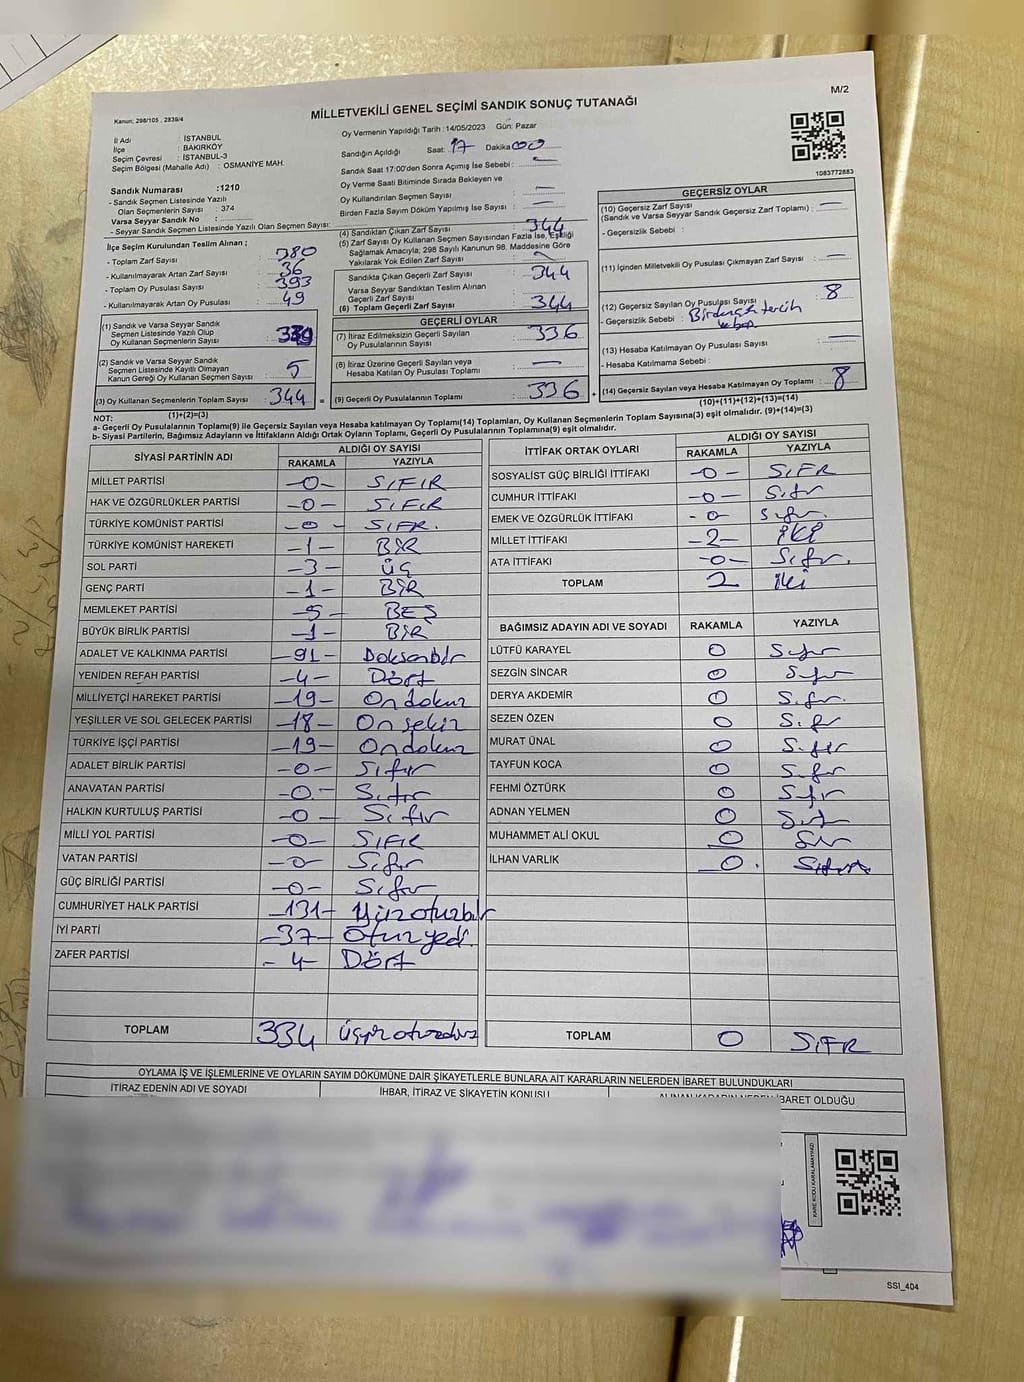 M/2
MİLLETVEKİLİ GENEL SEÇİMİ SANDIK SONUÇ TUTANAĞI
Kanun: 298/105 , 2839/4
İl Adı : İSTANBUL
İlçe : BAKIRKÖY
Seçim Çevresi : İSTANBUL-3
Seçim Bölgesi (Mahalle Adı) : OSMANİYE MAH.
Oy Vermenin Yapıldığı Tarih :14/05/2023 Gün: Pazar
Sandığın Açıldığı Saat: 17 Dakika 00
Sandık Saat 17:00'den Sonra Açımış İse Sebebi : —
Oy Verme Saati Bitiminde Sırada Bekleyen ve
Oy Kullandırılan Seçmen Sayısı : —
Birden Fazla Sayım Döküm Yapılmış İse Sayısı : —
1083772883
Sandık Numarası :1210
- Sandık Seçmen Listesinde Yazılı
Olan Seçmenlerin Sayısı : 374
Varsa Seyyar Sandık No :
- Seyyar Sandık Seçmen Listesinde Yazılı Olan Seçmen Sayısı:
İlçe Seçim Kurulundan Teslim Alınan ;
- Toplam Zarf Sayısı : 380
- Kullanılmayarak Artan Zarf Sayısı : 36
- Toplam Oy Pusulası Sayısı : 393
- Kullanılmayarak Artan Oy Pusulası : 49
(1) Sandık ve Varsa Seyyar Sandık
Seçmen Listesinde Yazılı Olup
Oy Kullanan Seçmenlerin Sayısı : 339
(2) Sandık ve Varsa Seyyar Sandık
Seçmen Listesinde Kayıtlı Olmayan
Kanun Gereği Oy Kullanan Seçmen Sayısı : 5
(3) Oy Kullanan Seçmenlerin Toplam Sayısı : 344 =
(1)+(2)=(3)
(4) Sandıktan Çıkan Zarf Sayısı : 344
(5) Zarf Sayısı Oy Kullanan Seçmen Sayısından Fazla İse, Eşitliği
Sağlamak Amacıyla; 298 Sayılı Kanunun 98. Maddesine Göre
Yakılarak Yok Edilen Zarf Sayısı :
Sandıkta Çıkan Geçerli Zarf Sayısı : 344
Varsa Seyyar Sandıktan Teslim Alınan
Geçerli Zarf Sayısı :
(6) Toplam Geçerli Zarf Sayısı : 344
GEÇERLİ OYLAR
(7) İtiraz Edilmeksizin Geçerli Sayılan
Oy Pusulalarının Sayısı : 336
(8) İtiraz Üzerine Geçerli Sayılan veya
Hesaba Katılan Oy Pusulası Toplamı : —
(9) Geçerli Oy Pusulalarının Toplamı : 336 +
GEÇERSİZ OYLAR
(10) Geçersiz Zarf Sayısı : —
(Sandık ve Varsa Seyyar Sandık Geçersiz Zarf Toplamı)
- Geçersizlik Sebebi :
(11) İçinden Milletvekili Oy Pusulası Çıkmayan Zarf Sayısı : —
(12) Geçersiz Sayılan Oy Pusulası Sayısı : 8
- Geçersizlik Sebebi : tercih
(13) Hesaba Katılmayan Oy Pusulası Sayısı : —
- Hesaba Katılmama Sebebi :
(14) Geçersiz Sayılan veya Hesaba Katılmayan Oy Toplamı : 8
(10)+(11)+(12)+(13)=(14)
NOT:
a- Geçerli Oy Pusulalarının Toplamı(9) ile Geçersiz Sayılan veya Hesaba katılmayan Oy Toplamı(14) Toplamları, Oy Kullanan Seçmenlerin Toplam Sayısına(3) eşit olmalıdır. (9)+(14)=(3)
b- Siyasi Partilerin, Bağımsız Adayların ve İttifakların Aldığı Ortak Oyların Toplamı, Geçerli Oy Pusulalarının Toplamına(9) eşit olmalıdır.
SİYASİ PARTİNİN ADI ALDIĞI OY SAYISI
RAKAMLA YAZIYLA
MİLLET PARTİSİ -0- SIFIR
HAK VE ÖZGÜRLÜKLER PARTİSİ -0- SIFIR
TÜRKİYE KOMÜNİST PARTİSİ -0- SIFR.
TÜRKİYE KOMÜNİST HAREKETİ -1- BİR
SOL PARTİ -3- üç
GENÇ PARTİ -1- BİR
MEMLEKET PARTİSİ -5- BEŞ
BÜYÜK BİRLİK PARTİSİ -1- BİR
ADALET VE KALKINMA PARTİSİ -91- Doksanbir
YENİDEN REFAH PARTİSİ -4- Dört
MİLLİYETÇİ HAREKET PARTİSİ -19- On dokuz
YEŞİLLER VE SOL GELECEK PARTİSİ -18- On sekiz
TÜRKİYE İŞÇİ PARTİSİ -19- On dokuz
ADALET BİRLİK PARTİSİ -0- Sıfır
ANAVATAN PARTİSİ -0- Sıfır
HALKIN KURTULUŞ PARTİSİ -0- Sıfır
MİLLİ YOL PARTİSİ -0- SIFIR
VATAN PARTİSİ -0- Sıfır
GÜÇ BİRLİĞİ PARTİSİ -0- Sıfır
CUMHURİYET HALK PARTİSİ -131- Yüzotuzbir
İYİ PARTİ -37- Otuzyedi
ZAFER PARTİSİ -4- Dört
TOPLAM 334 üçyüzotuzdört
İTTİFAK ORTAK OYLARI ALDIĞI OY SAYISI
RAKAMLA YAZIYLA
SOSYALİST GÜÇ BİRLİĞİ İTTİFAKI -0- SIFR
CUMHUR İTTİFAKI -0- Sıfır
EMEK VE ÖZGÜRLÜK İTTİFAKI -0- Sıfır.
MİLLET İTTİFAKI -2- İKİ
ATA İTTİFAKI -0- Sıfır.
TOPLAM 2 iki
BAĞIMSIZ ADAYIN ADI VE SOYADI RAKAMLA YAZIYLA
LÜTFÜ KARAYEL 0 Sıfır
SEZGİN SİNCAR 0 Sıfır
DERYA AKDEMİR 0 Sıfır.
SEZEN ÖZEN 0 Sıfır
MURAT ÜNAL 0 Sıfır
TAYFUN KOCA 0 Sıfır
FEHMİ ÖZTÜRK 0 Sıfır
ADNAN YELMEN 0 Sıfır
MUHAMMET ALİ OKUL 0
İLHAN VARLIK 0. Sıfır
TOPLAM 0 SIFR
OYLAMA İŞ VE İŞLEMLERİNE VE OYLARIN SAYIM DÖKÜMÜNE DAİR ŞİKAYETLERLE BUNLARA AİT KARARLARIN NELERDEN İBARET BULUNDUKLARI
İTİRAZ EDENİN ADI VE SOYADI İHBAR, İTİRAZ VE ŞİKAYETİN KONUSU ALINAN KARARIN NEDEN İBARET OLDUĞU
KARE KODU KARALAMAYINIZ!
SSI_404